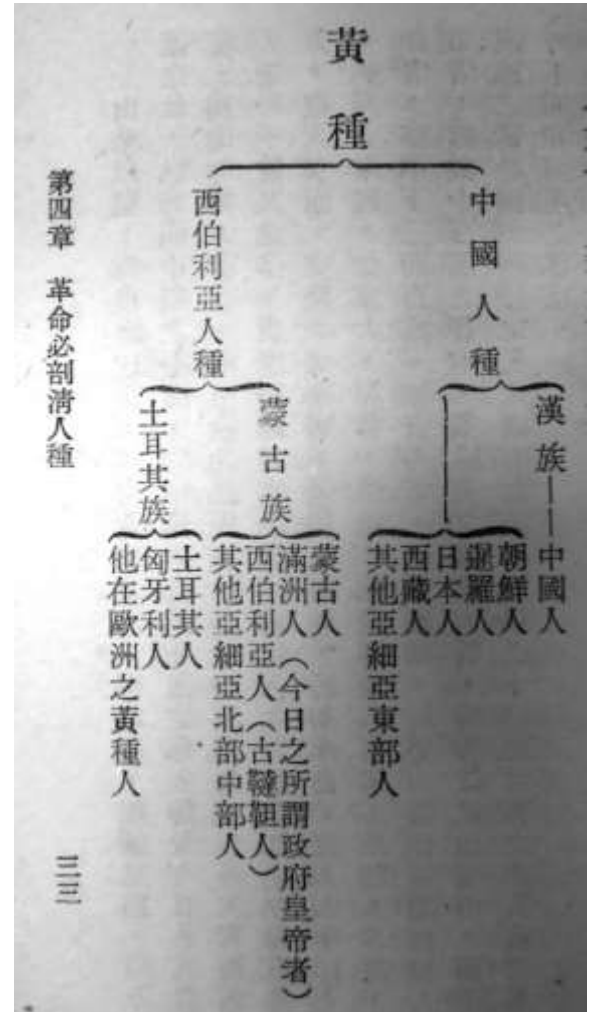 黃種
中國人種
漢族——中國人
朝鮮人
暹羅人
日本人
西藏人
其他亞細亞東部人
西伯利亞人種
蒙古族
蒙古人
滿洲人（今日之所謂政府皇帝者）
西伯利亞人（古韃靼人）
其他亞細亞北部中部人
土耳其族
土耳其人
匈牙利人
他在歐洲之黃種人
第四章　革命必剖淸人種
三三